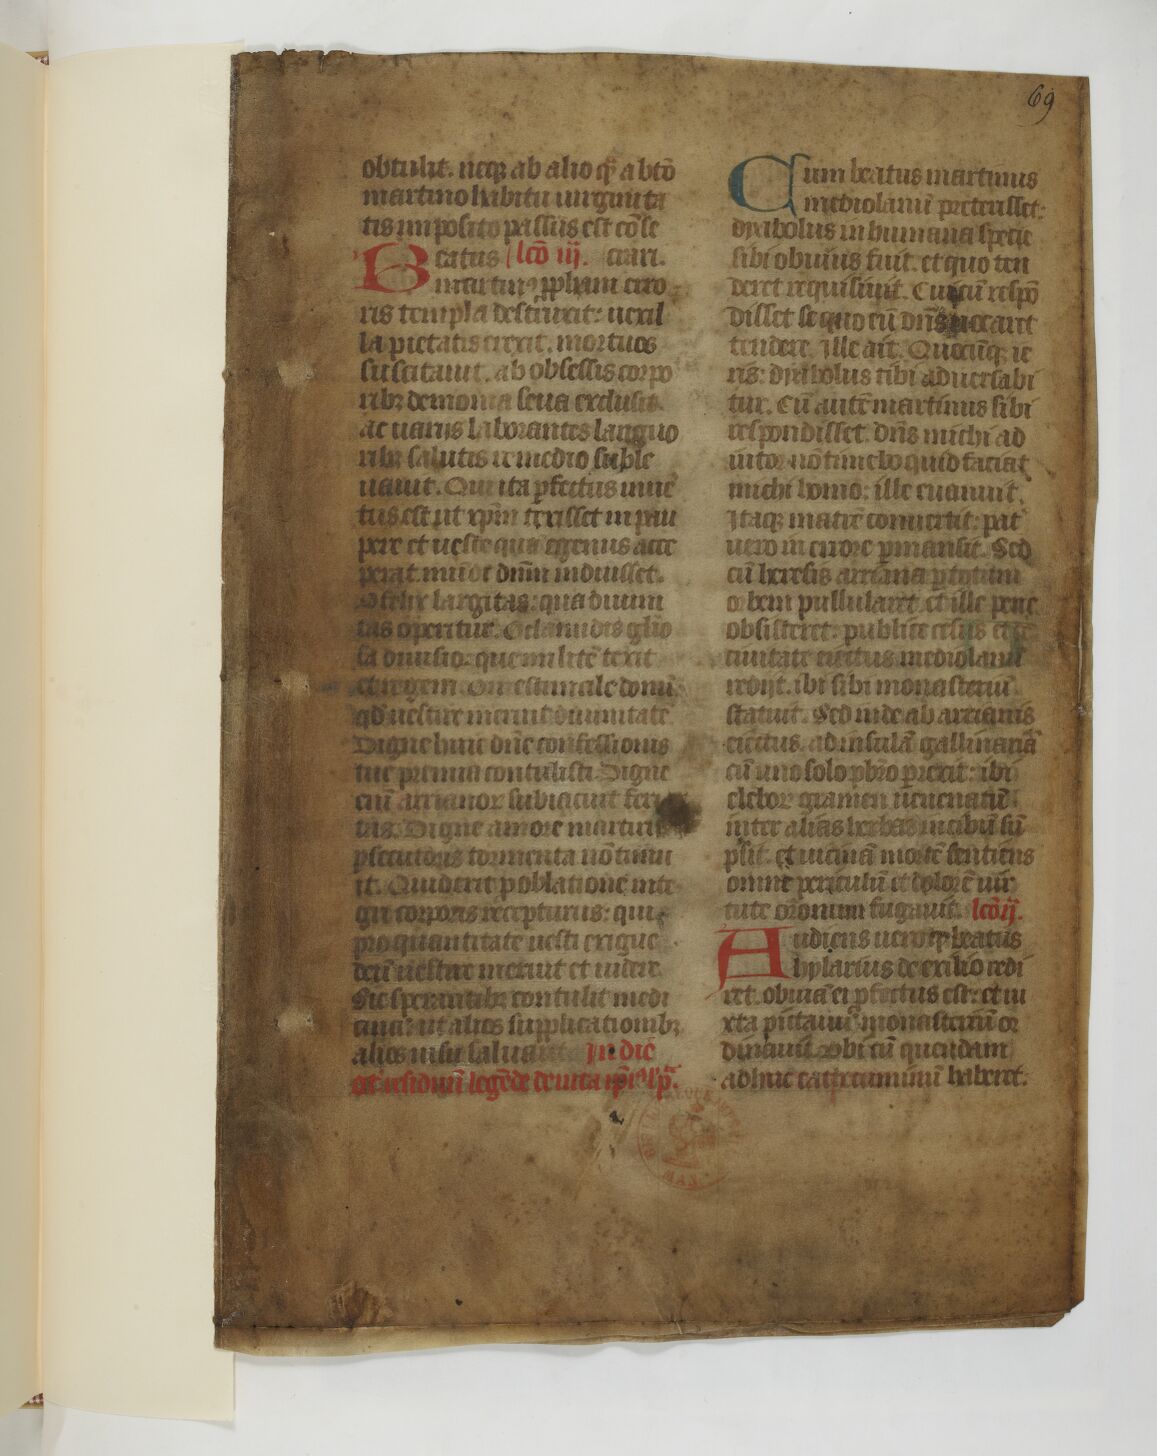 69
obtulit. neqꝫ ab alio qͣꝫ a btō
martino habitu uirginita
tis imposito passus est cōse
Beatus lcō iij. crari.
martinus pphani erro
ris templa destruxit: uexil
la pietatis erexit. mortuos
suscitauit. ab obsessis corpo
ribꝫ demonia seua exclusit.
ac uariis laborantes languo
ribꝫ salutis remedio suble
uauit. Qui ita pfectus inuē
tus est ut xpm texisset in pau
pere et ueste qua egenus acce
perat mundi dnm induisset.
O felix largitas: qua diuini
tas operitur. O clamidis glo
sa diuisio: que militē texit
et regem. O inestimabile donū.
qd uestire meruit diuinitatē
Digne huic dne confessionis
tue premia contulisti. Digne
ei arrianoꝝ subiacuit feri
tas. Digne amore martirii
psecutoris tormenta nō timu
it. Quid erit p oblatione inte
gri corporis recepturus: qui
pro quantitate uestis exigue
deū uestire meruit et uidere.
Sic sperantibꝫ contulit medi
cinā: ut alios supplicationibꝫ
alios uisu saluaret. In die
oct residuū legēde de uita ipī
Cum beatus martinus
mediolanū preterisset:
dyabolus in humana specie
sibi obuius fuit. et quo ten
deret requisiuit. Cui cū respō
disset se quo eū dns uocaret
tendere. ille ait. Quocūqꝫ ie
ris: dyabolus tibi aduersabi
tur. Cū autē martinus sibi
respondisset. dns michi ad
iutor nō timebo quid faciat
michi homo: ille euanuit.
Itaqꝫ matrē conuertit: pat
uero in errore pmansit. Sed
cū heresis arriana p totum
orbem pullularet. et ille pene
obsisteret: publice cesus et e
ciuitate eiectus mediolanū
redijt. ibi sibi monasteriū
statuit. Sed inde ab arrianis
eiectus. ad insulā gallinariā
cū uno solo pbro prexit: ibi
elebor gramen uenenatū
inter alias herbas in cibū sū
psit. et uicinā mortē sentiens
omne periculū et dolorē uir
tute oronum fugauit. lcō ij.
Audiens uero qꝫ beatus
hylarius de exilio redi
ret. obuiā ei pfectus est: et iu
xta pictauiū monasteriū or
dinauit. Ubi cū quendam
adhuc cathecuminū haberet.